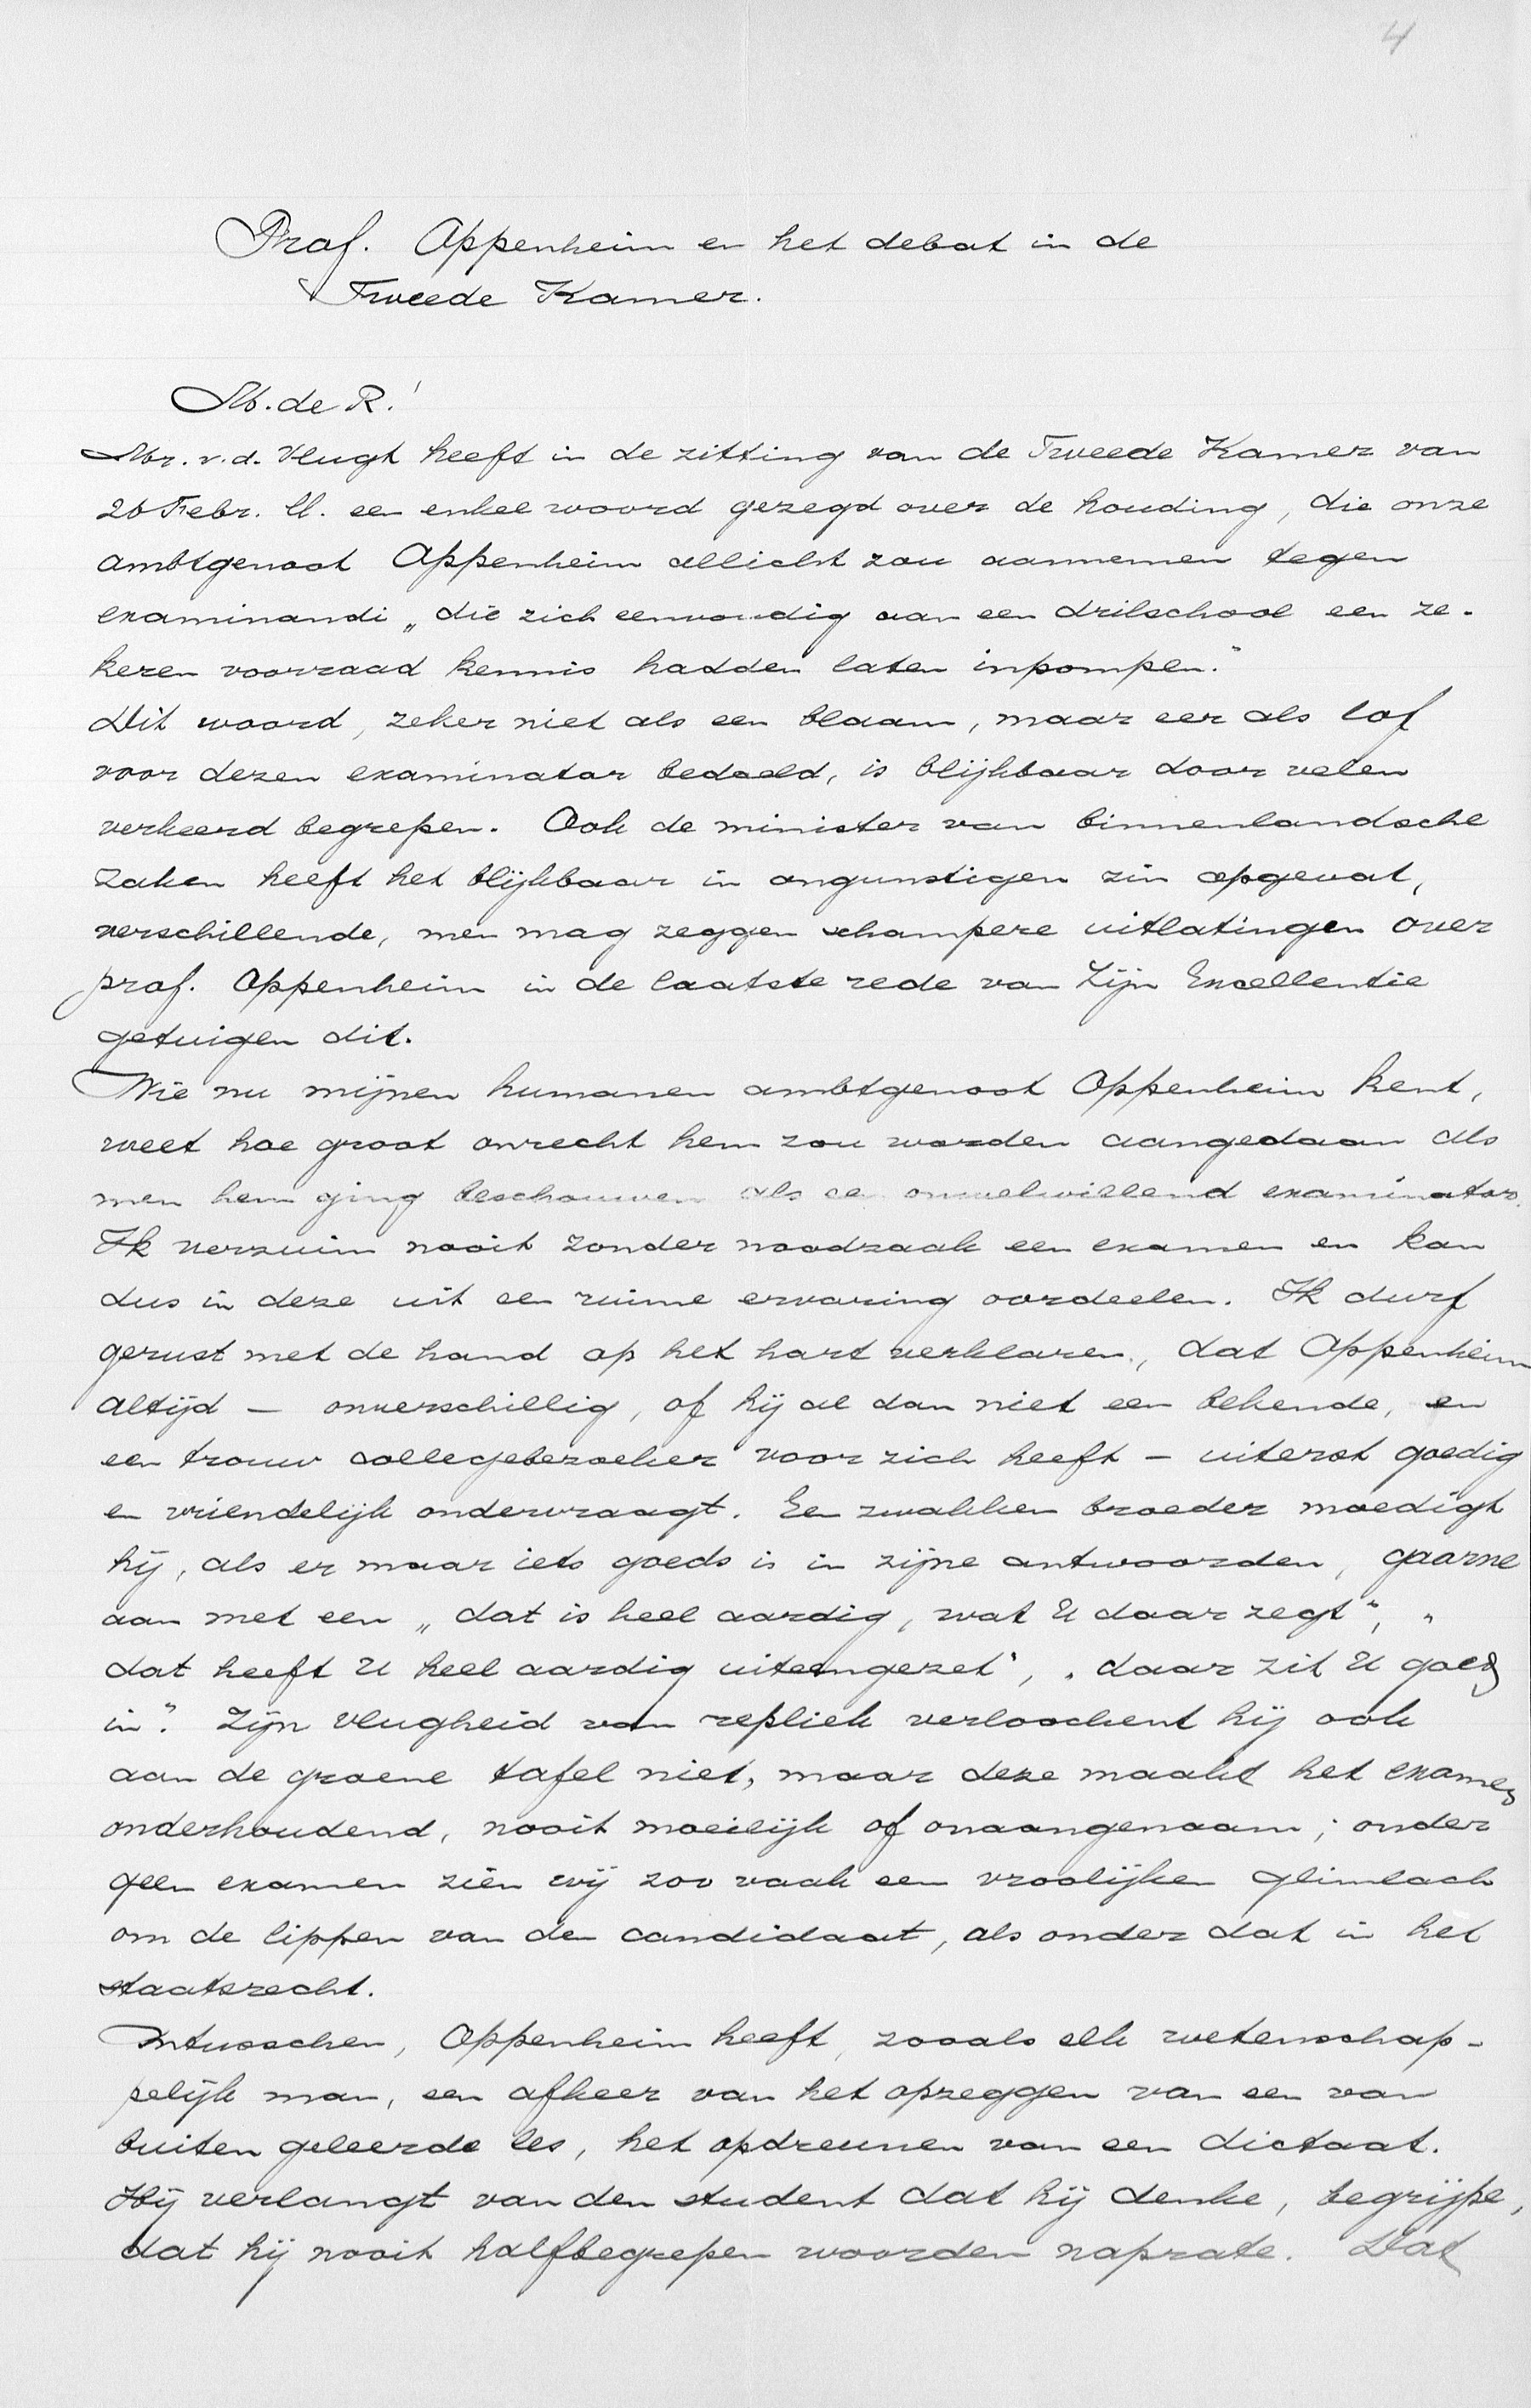 4
Prof. Oppenheim en het debat in de
Tweede Kamer.
M. de R.!
Mr. v.d. Vlugt heeft in de zitting van de Tweede Kamer van
26 Febr. ll. een enkel woord gezegd over de houding, die onze
ambtgenoot Oppenheim allicht zou aannemen tegen
examinandi „die zich eenvoudig aan een drilschool een ze-
keren voorraad kennis hadden laten inpompen."
Dit woord, zeker niet als een blaam, maar eer als lof
voor dezen examinator bedoeld, is blijkbaar door velen
verkeerd begrepen. Ook de minister van binnenlandsche
zaken heeft het blijkbaar in ongunstigen zin opgevat,
verschillende, men mag zeggen schampere uitlatingen over
prof. Oppenheim in de laatste rede van Zijn Excellentie
getuigen dit.
Wie nu mijnen humanen ambtgenoot Oppenheim kent,
weet hoe groot onrecht hem zou worden aangedaan als
men hem ging beschouwen als een onwelwillend examinator.
Ik verzuim nooit zonder noodzaak een examen en kan
dus in deze uit een ruime ervaring oordeelen. Ik durf
gerust met de hand op het hart verklaren, dat Oppenheim
altijd — onverschillig, of hij al dan niet een bekende, en
een trouw collegebezoeker voor zich heeft — uiterst goedig
en vriendelijk ondervraagt. Een zwakken broeder moedigt
hij, als er maar iets goeds is in zijne antwoorden, gaarne
aan met een „dat is heel aardig, wat U daar zegt", „
dat heeft U heel aardig uiteengezet", „daar zit U goed
in". Zijn vlugheid van repliek verloochent hij ook
aan de groene tafel niet, maar deze maakt het examen
onderhoudend, nooit moeilijk of onaangenaam; onder
geen examen zien wij zoo vaak een vroolijken glimlach
om de lippen van den candidaat, als onder dat in het
staatsrecht.
Intusschen, Oppenheim heeft, zooals elk wetenschap-
pelijk man, een afkeer van het opzeggen van een van
buiten geleerde les, het opdreunen van een dictaat.
Hij verlangt van den student dat hij denke, begrijpe,
dat hij nooit halfbegrepen woorden naprate. Dat